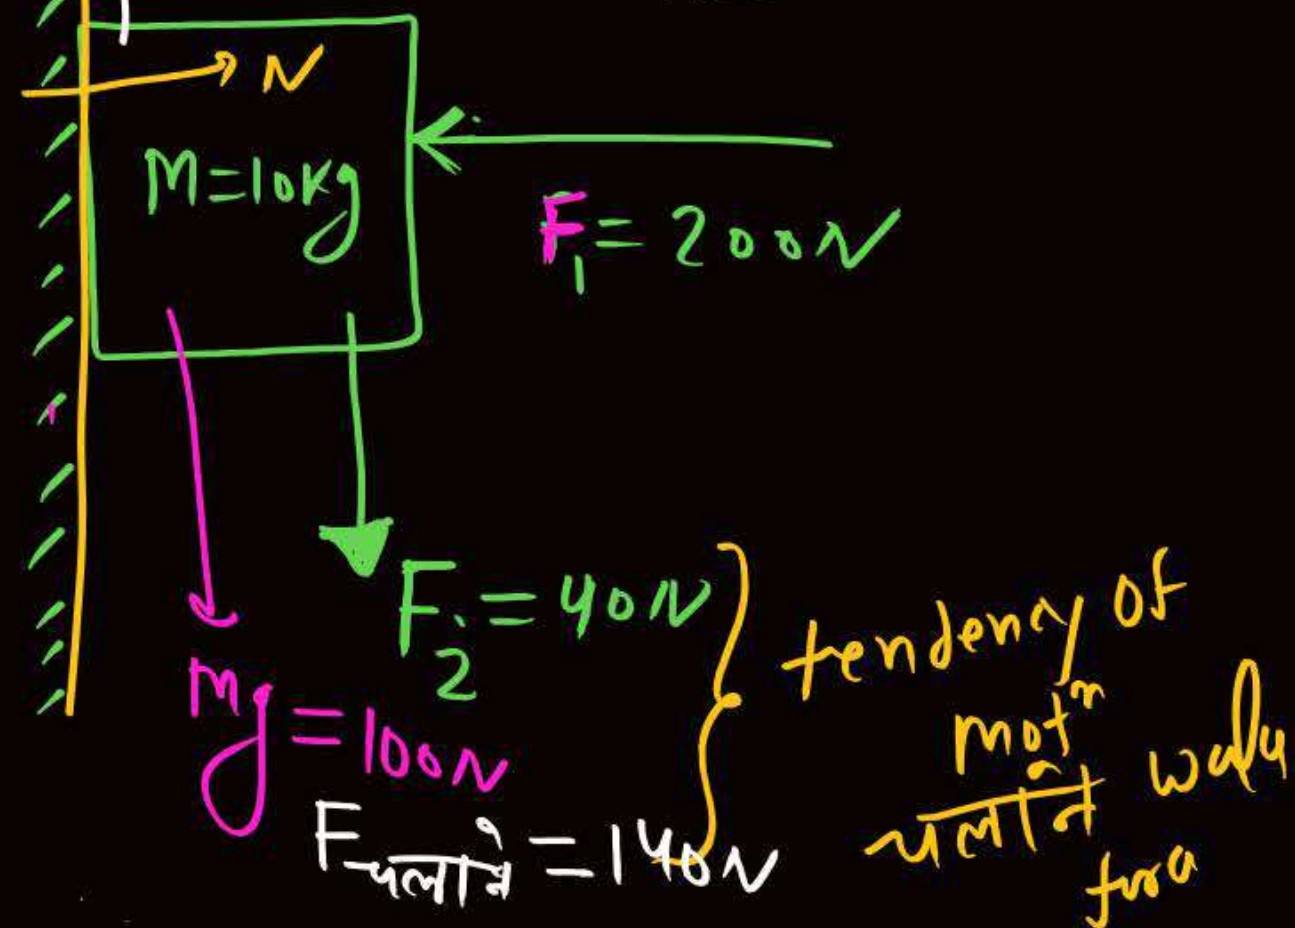 N
M=10kg
F₁ = 200N
F₂ = 40N
mg = 100N
Fचलाने = 140N
tendency of
motⁿ
चलाने wala